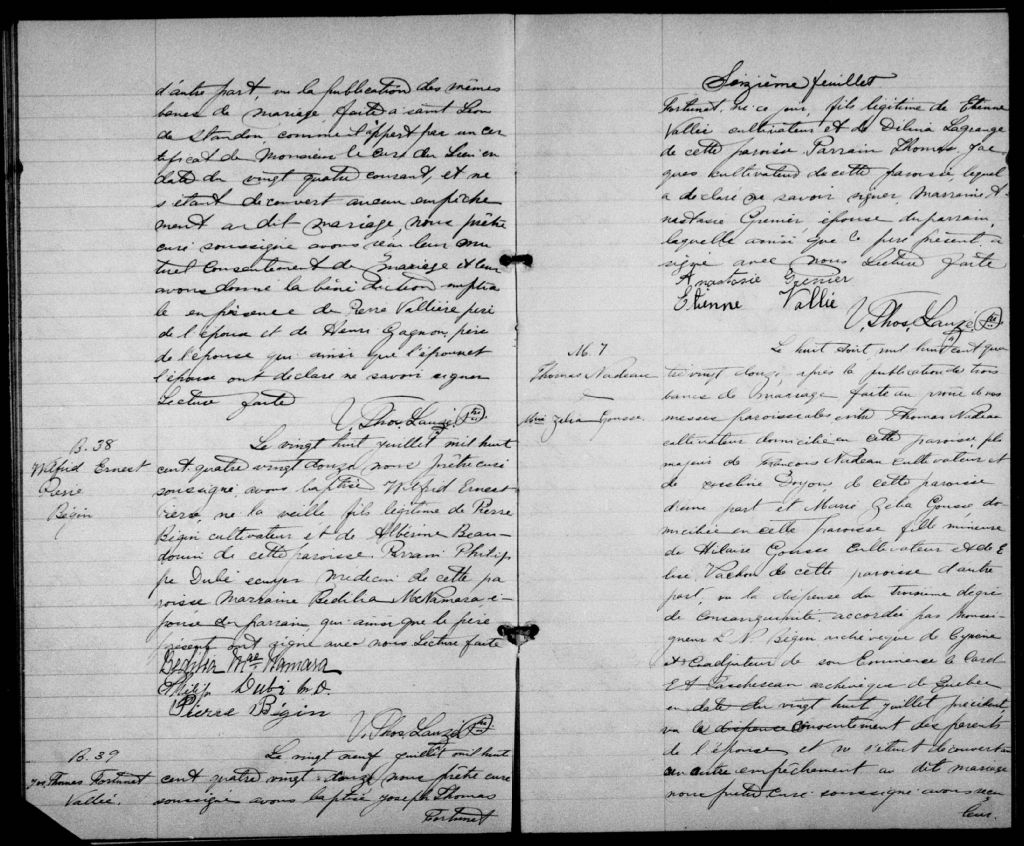 d'autre part, vu la publication des mêmes
bancs de mariage faite à saint Léon
de Standon, comme il appert par un cer
tificat de Monsieur le curé du lieu en
date du vingt quatre courant, et ne
s'étant découvert aucun empêche
ment au dit mariage, nous prêtre
curé soussigné avons reçu leur mu
tuel consentement de mariage et leur
avons donné la bénédiction nuptia
le en présence de Pierre Vallière père
de l'époux et de Henri Gagnon, père
de l'épouse qui ainsi que l'époux et
l'épouse ont déclaré ne savoir signer
Lecture faite
V. Thos. Lauzé Ptre
B. 38
Wilfrid Ernest
Pierre
Bégin
Le vingt huit juillet mil huit
cent quatre vingt douze, nous prêtre curé
soussigné avons baptisé Wilfrid Ernest
Pierre, né la veille fils légitime de Pierre
Bégin cultivateur et de Albérine Beau-
douin de cette paroisse. Parrain Philip
pe Dubé écuyer Médecin de cette pa
roisse Marraine Bedilia McNamara é-
pouse du parrain qui ainsi que le père
présent ont signé avec nous Lecture faite
Bedilia McNamara
Philip Dubé M.D.
Pierre Bégin
V. Thos. Lauzé Ptre
B. 39
Jos. Thomas Fortunat
Vallié.
Le vingt neuf juillet mil huit
cent quatre vingt douze nous prêtre curé
soussigné avons baptisé Joseph Thomas
Fortunat
Seizième feuillet
Fortunat, né ce jour, fils légitime de Etienne
Vallié cultivateur et de Délina Lagrange
de cette paroisse Parrain Thomas Jac
ques cultivateur de cette paroisse lequel
a déclaré ne savoir signer, marraine A
nastasie Grenier, épouse du parrain,
laquelle ainsi que le père présent a
signé avec nous Lecture faite
Anastasie Grenier
Etienne Vallié
V. Thos. Lauzé Ptre
M. 7
Thomas Nadeau
&
Marie Zélia Gousse.
Le huit août mil huit cent qua
tre vingt douze, après la publication de trois
bancs de mariage faite au prône de nos
messes paroissiales entre Thomas Nadeau
cultivateur domicilié en cette paroisse, fils
majeur de François Nadeau cultivateur et
de Doyon, de cette paroisse
d'une part et Marie Zélia Gousse do-
miciliée en cette paroisse fille mineure
de Hilaire Gousse cultivateur et de E
lise Vachon de cette paroisse d'autre
part, vu la dispense du troisième degré
de consanguinité accordée par Monsei-
gneur L. N. Bégin archevêque de Cyrène
et Coadjuteur de son Eminence le Card
E A Taschereau archevêque de Québec
en date du vingt huit juillet précédent,
vu le dispense consentement des parents
de l'épouse et ne s'étant découvert au
cun autre empêchement au dit mariage
nous prêtre curé soussigné avons reçu
leur